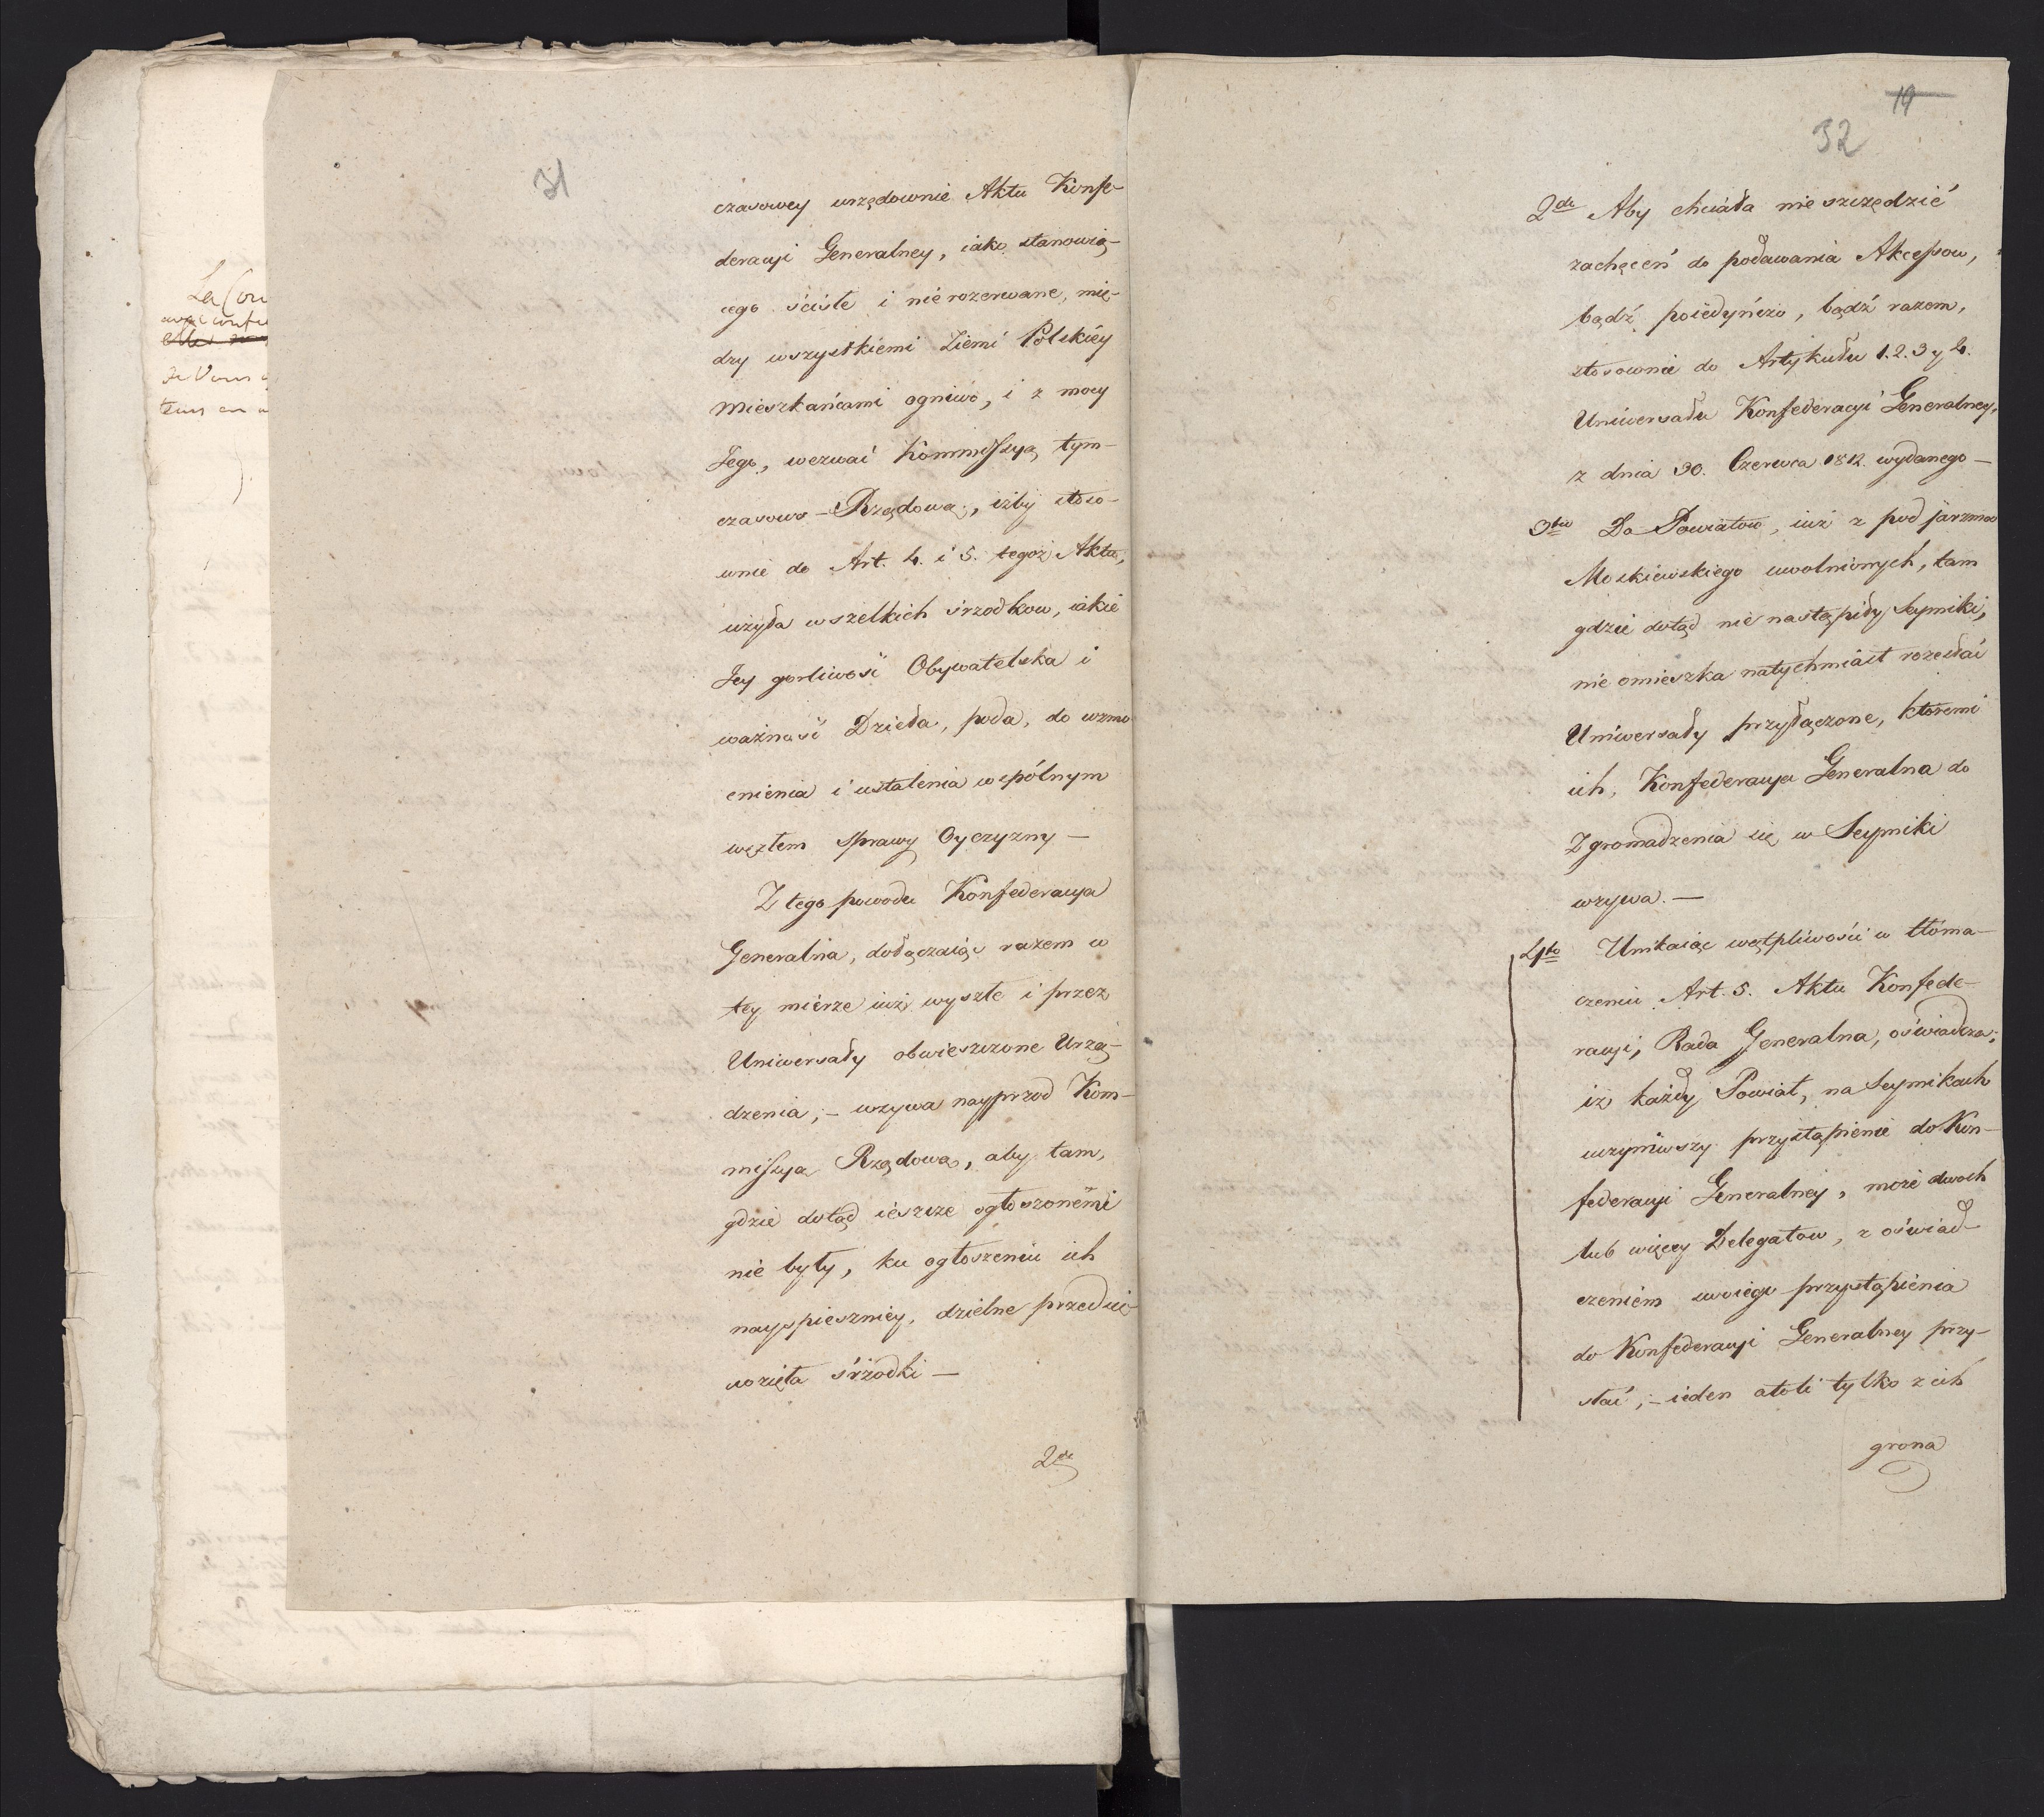 La Con
elle
Je Vous
tems en
31
czasowey urzędownie Aktu Konfe-
deracyi Generalney, iako stanowią-
cego ściśłe i nierozerwane, mię-
dzy wszystkiemi Ziemi Polskiéy
Mieszkańcami ogniwo, i z mocy
Jego, wezwać Kommissyą tym-
czasowo-Rządową, iżby stoso-
wnie do Art. 4. i 5. tegoż Aktu,
użyła wszelkich śrzodkow, iakie
Jey gorliwość Obywatelska i
ważność Dzieła, poda, do wzmo
cnienia i ustalenia wspólnym
węzłem Sprawy Oyczyzny —
Z tego powodu Konfederacya
Generalna, dołączaiąc razem w
tey mierze iuż wyszłe i przez
Uniwersały obwieszczone Urzą-
dzenia; — wzywa nayprzod Kom-
missyą Rządową, aby tam,
gdzie dotąd ieszcze ogłoszonemi
nie były, ku ogłoszeniu ich
nayspieszniey, dzielne przedsię-
wzięła śrzodki —
2do
19
32
2do Aby chciała nie szczędzić
zachęceń do podawania Akcessow,
bądź poiedyńczo, bądź razem,
stosownie do Artykułu 1. 2. 3 y 4.
Uniwersału Konfederacyi Generalney,
z dnia 30. Czerwca 1812. wydanego —
3tio Do Powiatow, iuż z pod jarzma
Moskiewskiego uwolnionych, tam
gdzie dotąd nie nastąpiły Seymiki,
nie omieszka natychmiast rozesłać
Uniwersały przyłączone, ktoremi
ich, Konfederacya Generalna do
Zgromadzenia się w Seymiki
wzywa. —
4to Unikaiąc wątpliwości w tłóma-
czeniu Art. 5. Aktu Konfede-
racyi, Rada Generalna, oświadcza;
iż każdy Powiat, na Seymikach
uczyniwszy przystąpienie do Kon-
federacyi Generalney, może dwoch
lub więcey Delegatow, z oświad-
czeniem swoiego przystąpienia
do Konfederacyi Generalney przy-
słać; — ieden atoli tylko z ich
grona